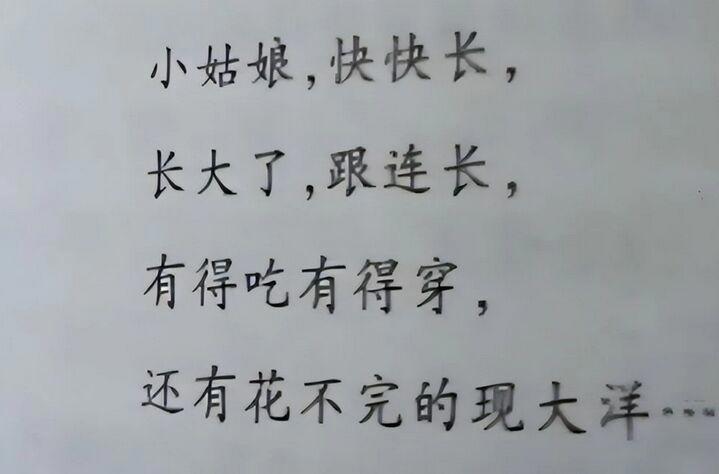 小姑娘,快快长,
长大了,跟连长,
有得吃有得穿,
还有花不完的现大洋……